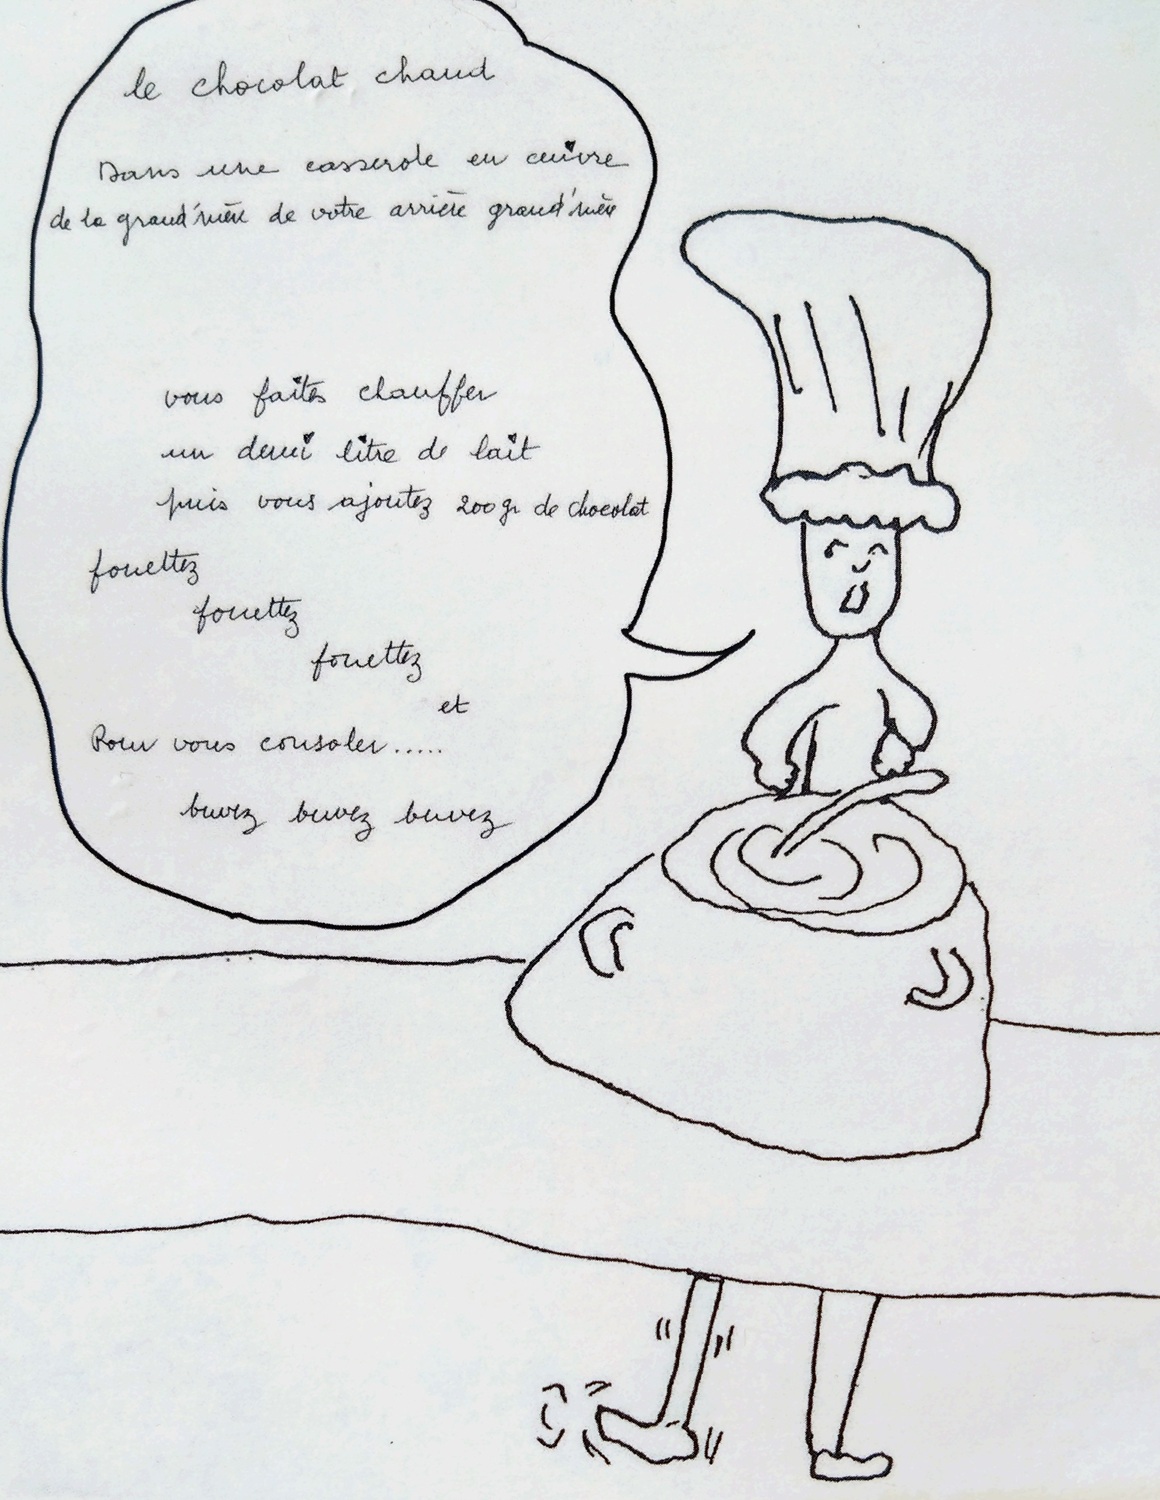 le chocolat chaud
Dans une casserole en cuivre
de la grand'mère de votre arrière grand'mère
vous faites chauffer
un demi litre de lait
puis vous ajoutez 200 gr de chocolat
fouettez
fouettez
fouettez
et
Pour vous consoler.....
buvez buvez buvez